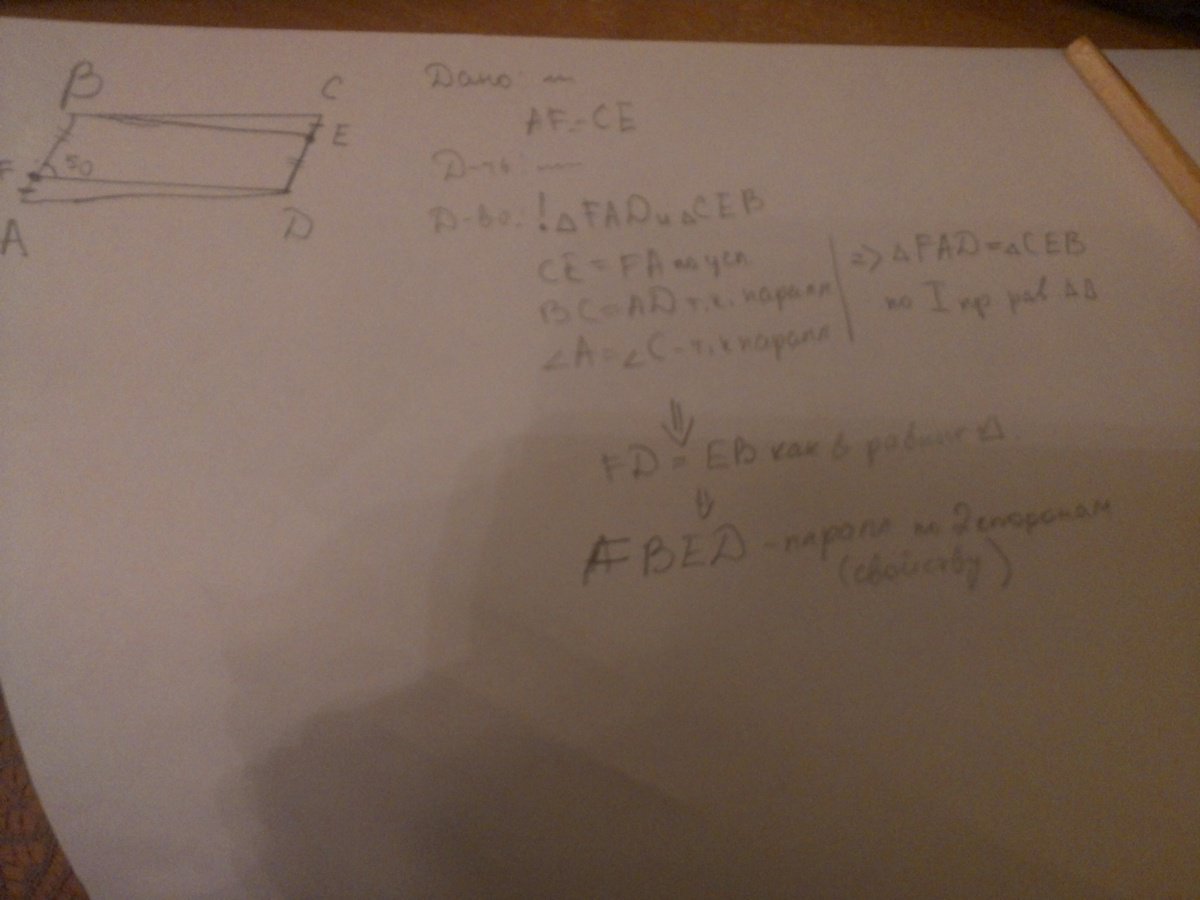 B
C
E
F
50
A
D
Дано: —
AF=CE
Д-ть: —
Д-во: ! △FAD и △CEB
CE = FA по усл
BC=AD т.к. паралл
∠A=∠C-т.к паралл
=> △FAD=△CEB
по I пр. рав △△
⇓
FD = EB как в равных △
⇓
FBED - паралл по 2 сторонам
(свойству)